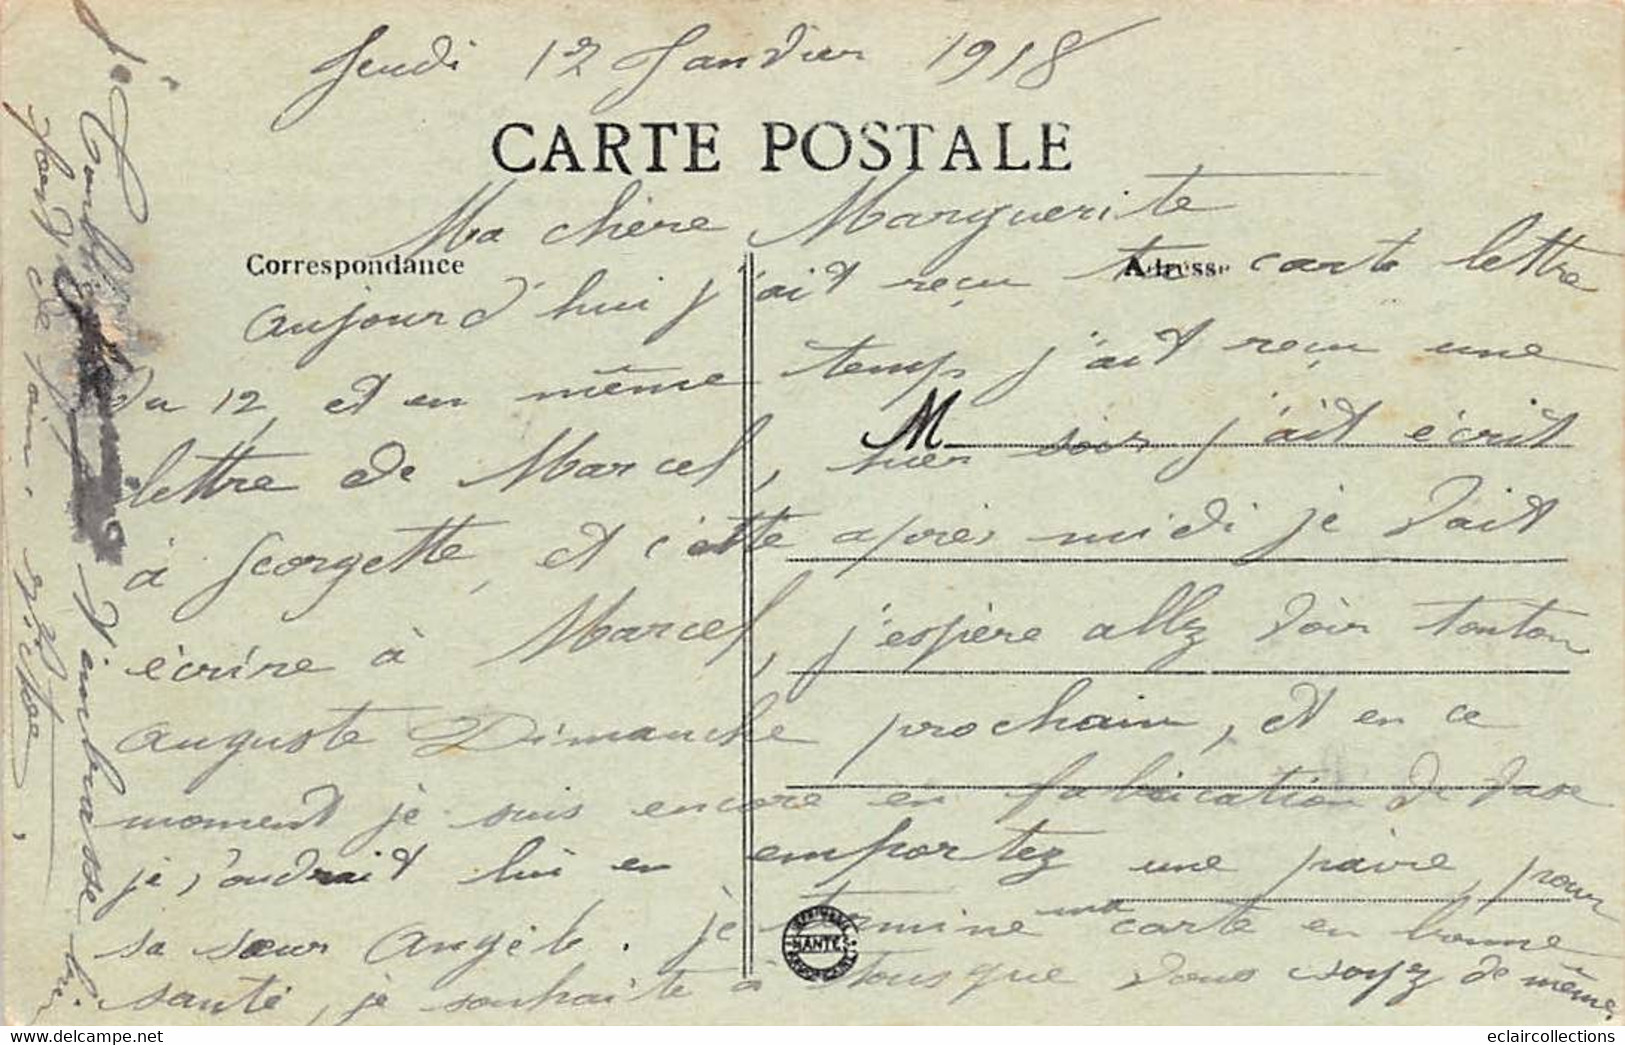 Jeudi 12 Janvier 1918
CARTE POSTALE
Ma chère Marguerite
Correspondance
Adresse
aujourd'hui j'ait reçu ta carte lettre
du 12, et en même temps j'ait reçu une
M
lettre de Marcel, hier soir j'ait écrit
à Georgette, et c'ette après midi je vait
écrire à Marcel, j'espère allez voir tonton
auguste Dimanche prochain, et en ce
moment je suis encore en fabrication de vase
je voudrait lui en emportez une paire pour
sa sœur Angèle. je termine ma carte en bonne
santé, je souhaite à tous que vous soyez de même,
NANTES
t'embrasse bien
fort de loin.
eclaircollections